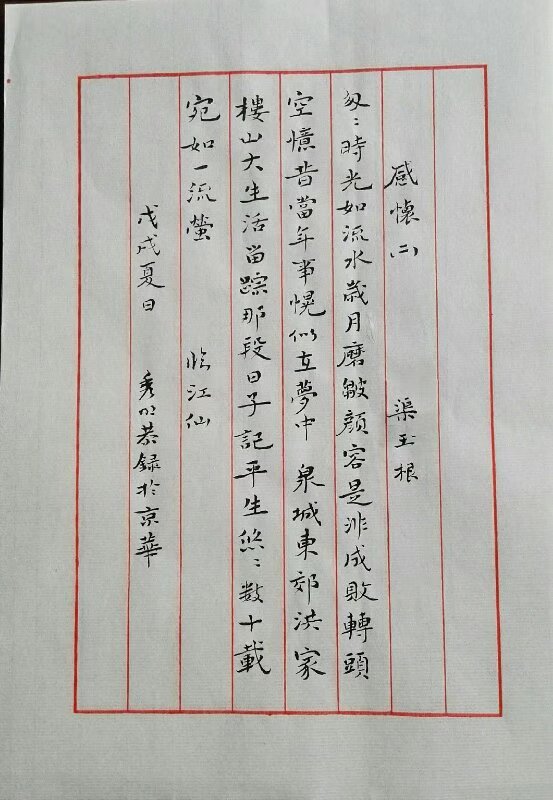 感懷(二) 渠玉根
匆々時光如流水歲月磨皺顔容是非成敗轉頭
空憶昔當年事恍似在夢中 泉城東郊洪家
樓山大生活留踪那段日子記平生悠々數十載
宛如一流螢 临江仙
戊戌夏日 秀明恭録於京華